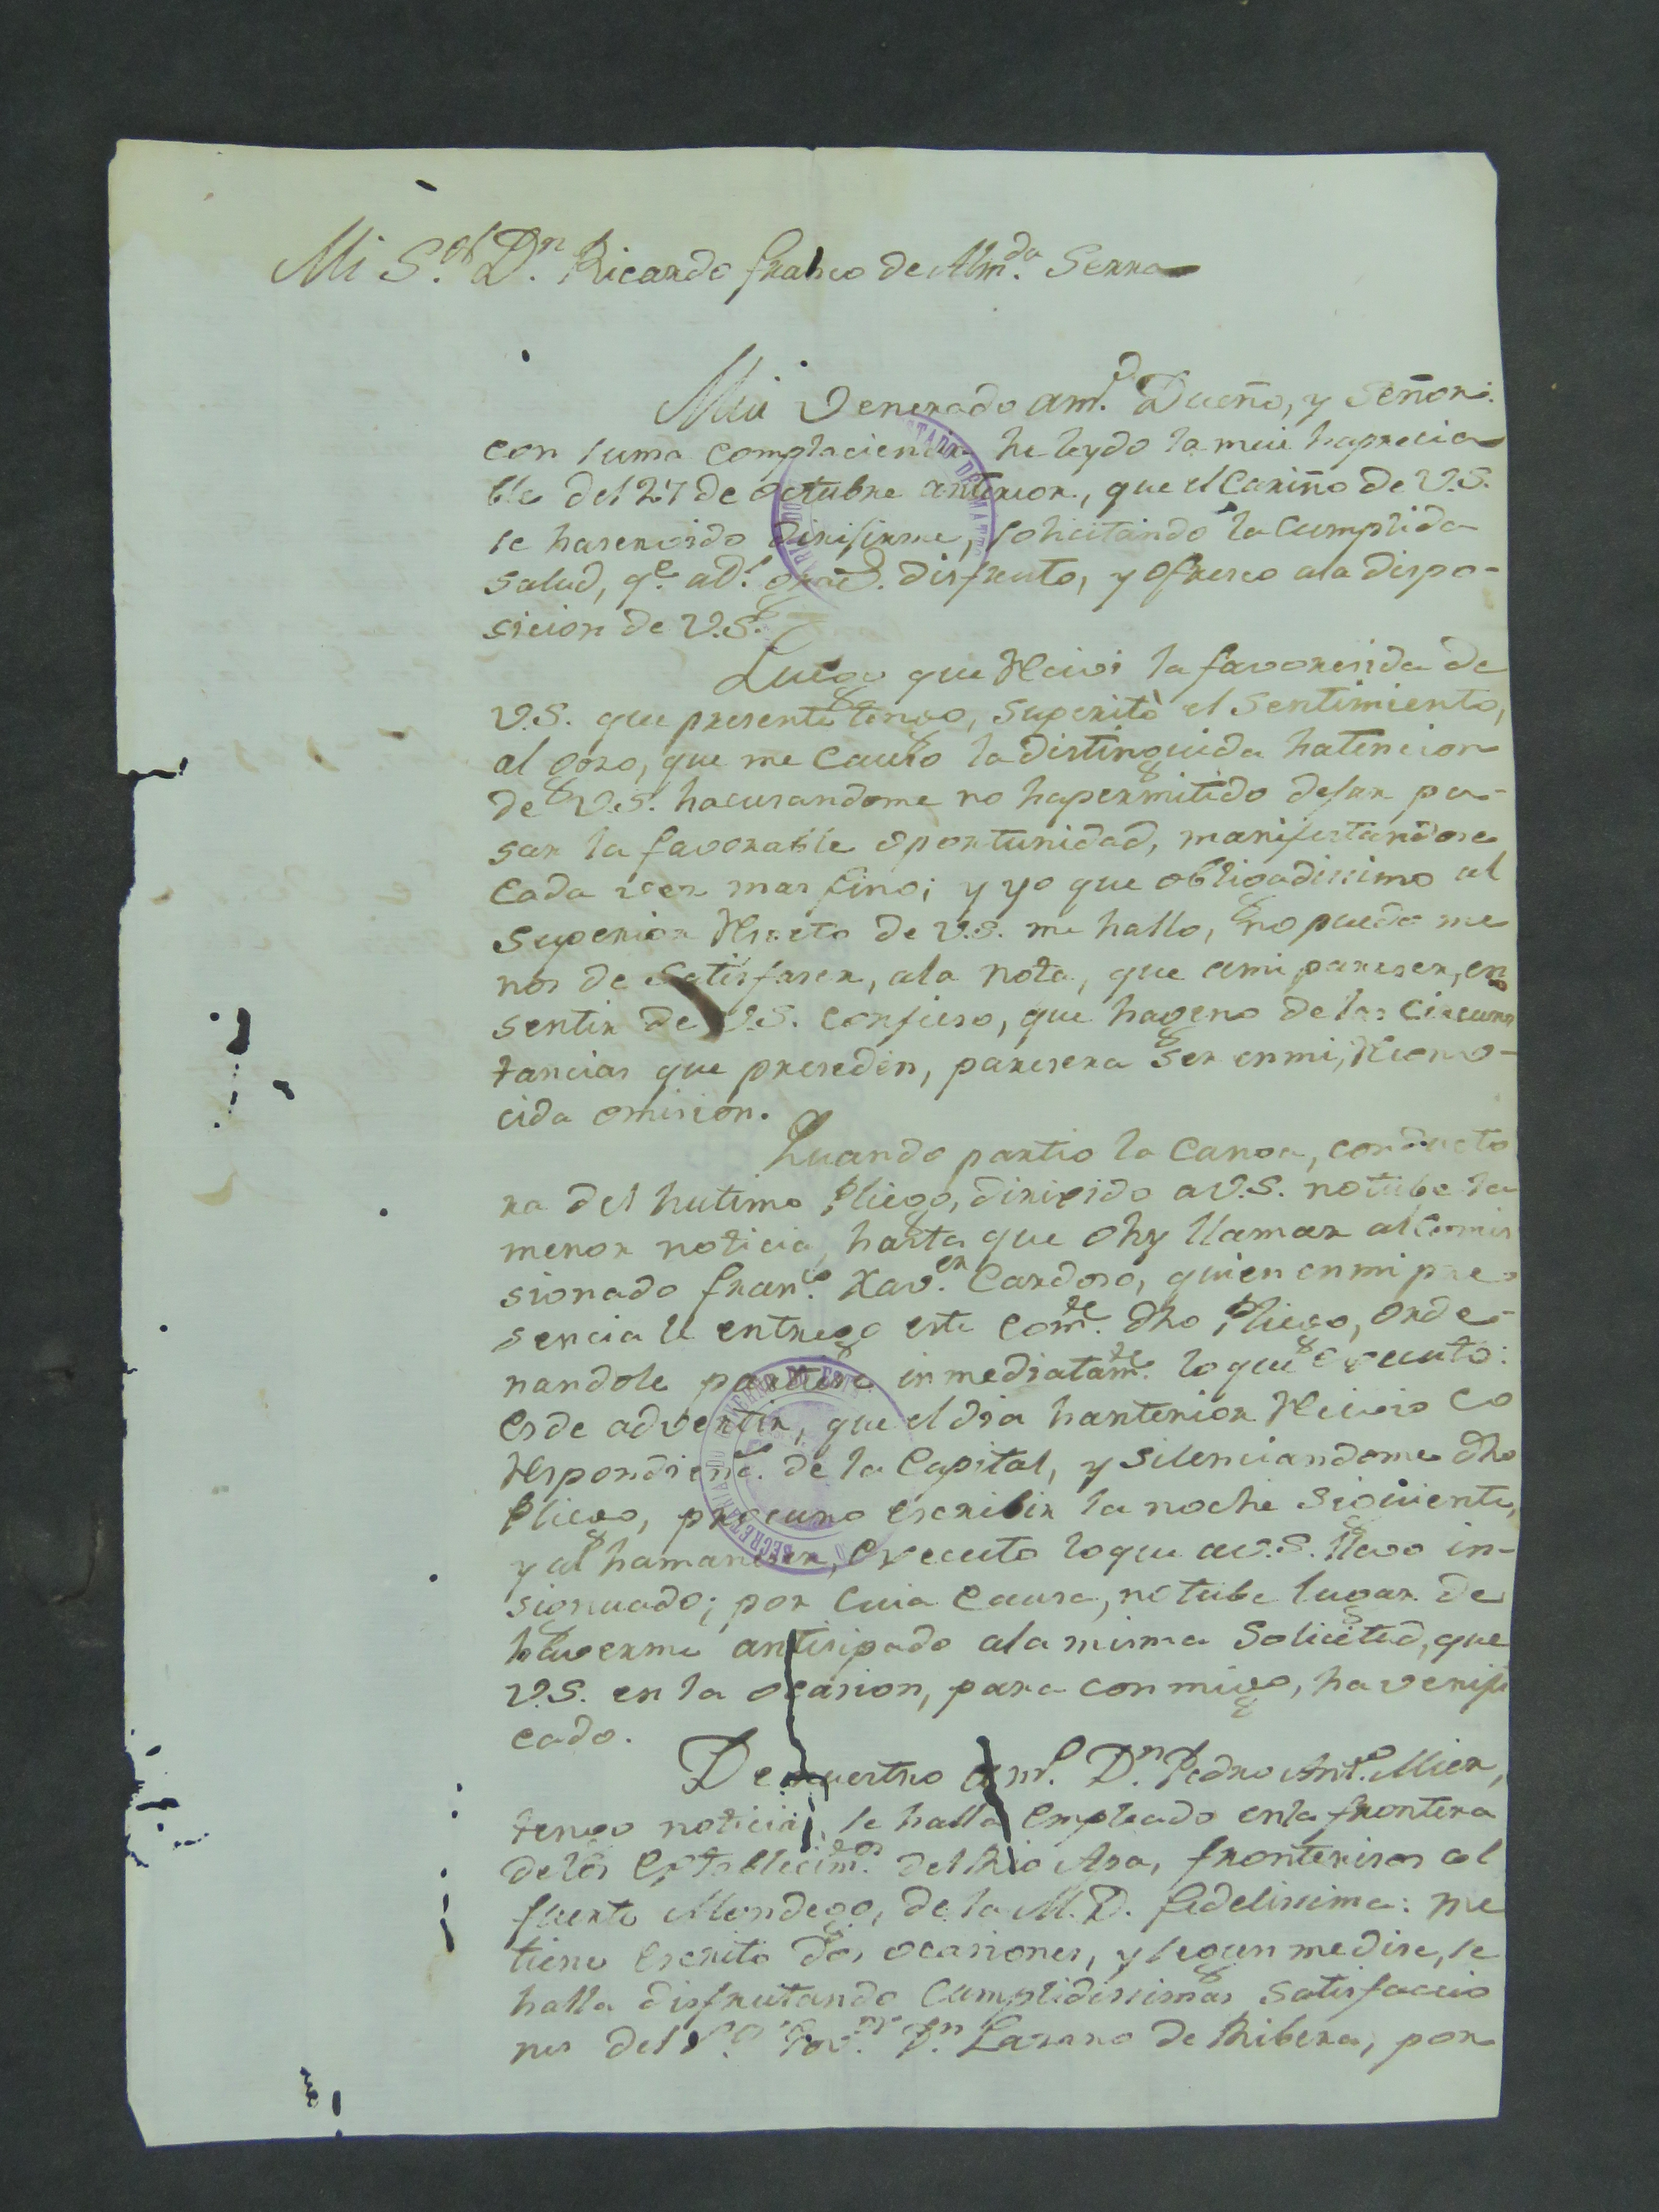 Mi S.or D.n Ricardo franco de Alm.da Serra
Mui Venerado am.o Dueño, y Señor:
con suma complaciencia he leydo la mui haprecia
ble del 27 de octubre anterior, que el Cariño de V.S.
se haservido dirisirme, solicitando la Cumplida
salud, q.e a D.s grac.s disfruto, y ofresco ala dispo-
sicion de V.S.
Luego que Recivi la favoresida de
V.S. que presente tengo, superitò el sentimiento,
al goso, que me Causo la distinguida hatencion
de V.S. hacusandome no hapermitido desar pa-
sar la favorable oportunidad, manifestandose
cada ves mas fino; y yo que obligadissimo al
superior Respeto de V.S. me hallo, no puedo me
nos de satisfaser, ala nota, que ami pareser, en
sentir de V.S. confieso, que hageno de las Circuns
tancias que preseden, paresera ser enmi, Recono-
cida omision.
Quando partio la Canoa, conducto
ra del hutimo Pliego, dirigido a V.S. no tube la
menor noticia, hasta que ohy llamar al Comis
sionado fran.co Xav.er Cardoso, quien enmi pre
sencia le entrego este Com.te dho Pliego, orde-
nandole partir inmediatam.te lo que egecuto:
Es de advertir, que el dia hanterior Recivio Co
Respondienc.a de la Capital, y silenciandome dho
Pliego, procuro escribir la noche siguiente,
y al hamaneser, egecuto loque a V.S. llevo in-
signuado; por cuia Causa, no tube lugar de
haverme antisipado ala misma solicitud, que
V.S. en la ocasion, para con migo, ha verifi
cado.
De nuestro am.o D.n Pedro Ant.o Mier,
tengo noticia, se halla Empleado en la frontera
de los Establecim.tos del Rio Apa, fronterisos al
fuerte Mondego, de la M.D. fidelissima: me
tiene Escrito dos ocasiones, y segun me dise, se
halla disfrutando Cumplidissimas satisfaccio
nes del S.or Gov.or D.n Lasaro de Ribera, por